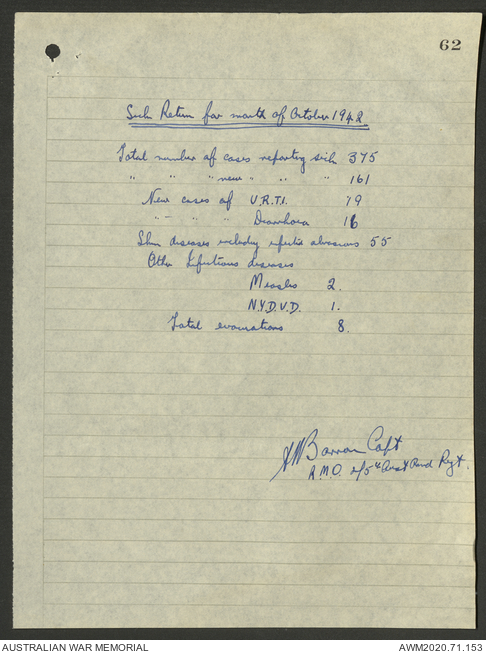 62
Sick Return for month of October 1942.
Total number of cases reporting sick 375
" " " new " " " 161
New cases of U.R.T.I. 79
" " " Diarrhoea 16
Skin diseases including infected abrasions 55
Other Infectious diseases
Measles 2.
N.Y.D.V.D. 1.
Total evacuations 8.
Barron Capt
R.M.O. 2/5th Aust Regt.
AUSTRALIAN WAR MEMORIAL
AWM2020.71.153